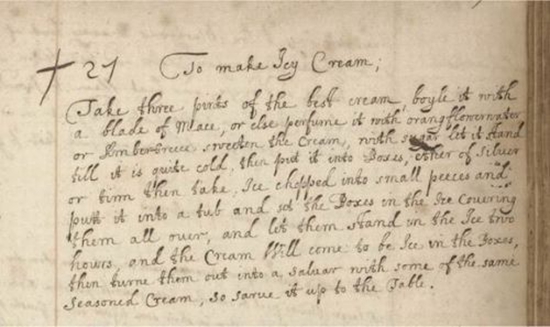 + 27 To make Icy Cream;
Take three pints of the best cream, boyle it with
a blade of Mace, or else perfume it with orang flower water
or AmberGreece, sweeten the Cream, with sugar let it stand
till it is quite cold, then put it into Boxes, ether of Silver
or tinn then take, Ice chopped into small peeces and
putt it into a tub and set the Boxes in the Ice Covering
them all over, and let them stand in the Ice two
hours, and the Cream Will come to be Ice in the Boxes,
then turne them out into a salvar with some of the same
seasoned Cream, so sarve it up to the Table.